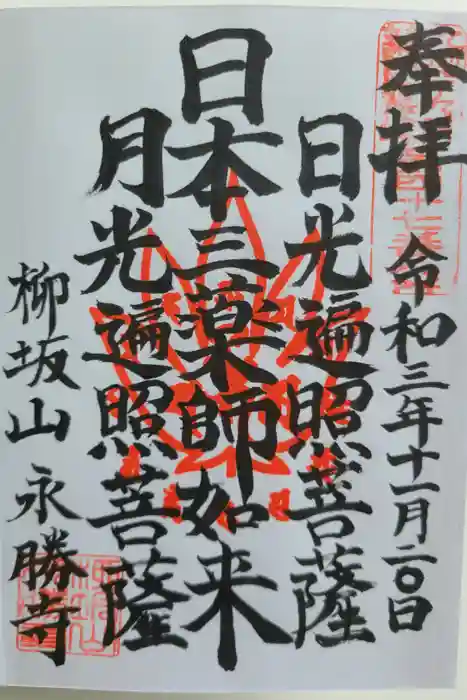 奉拝
令和三年十一月二〇日
日光遍照菩薩
日本三薬師如来
月光遍照菩薩
柳坂山永勝寺